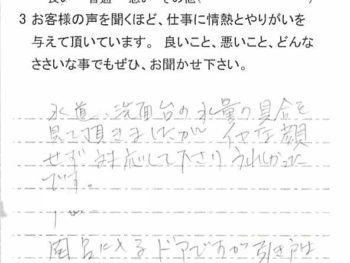 良い 普通 悪い その他( )
3 お客様の声を聞くほど、仕事に情熱とやりがいを
与えて頂いています。 良いこと、悪いこと、どんな
ささいな事でもぜひ、お聞かせ下さい。
水道、洗面台の水量の具合を
見て頂きましたが イヤな顔
せず 対応して下さり うれしかった
です。
風呂に入る ドアですが 引き戸は